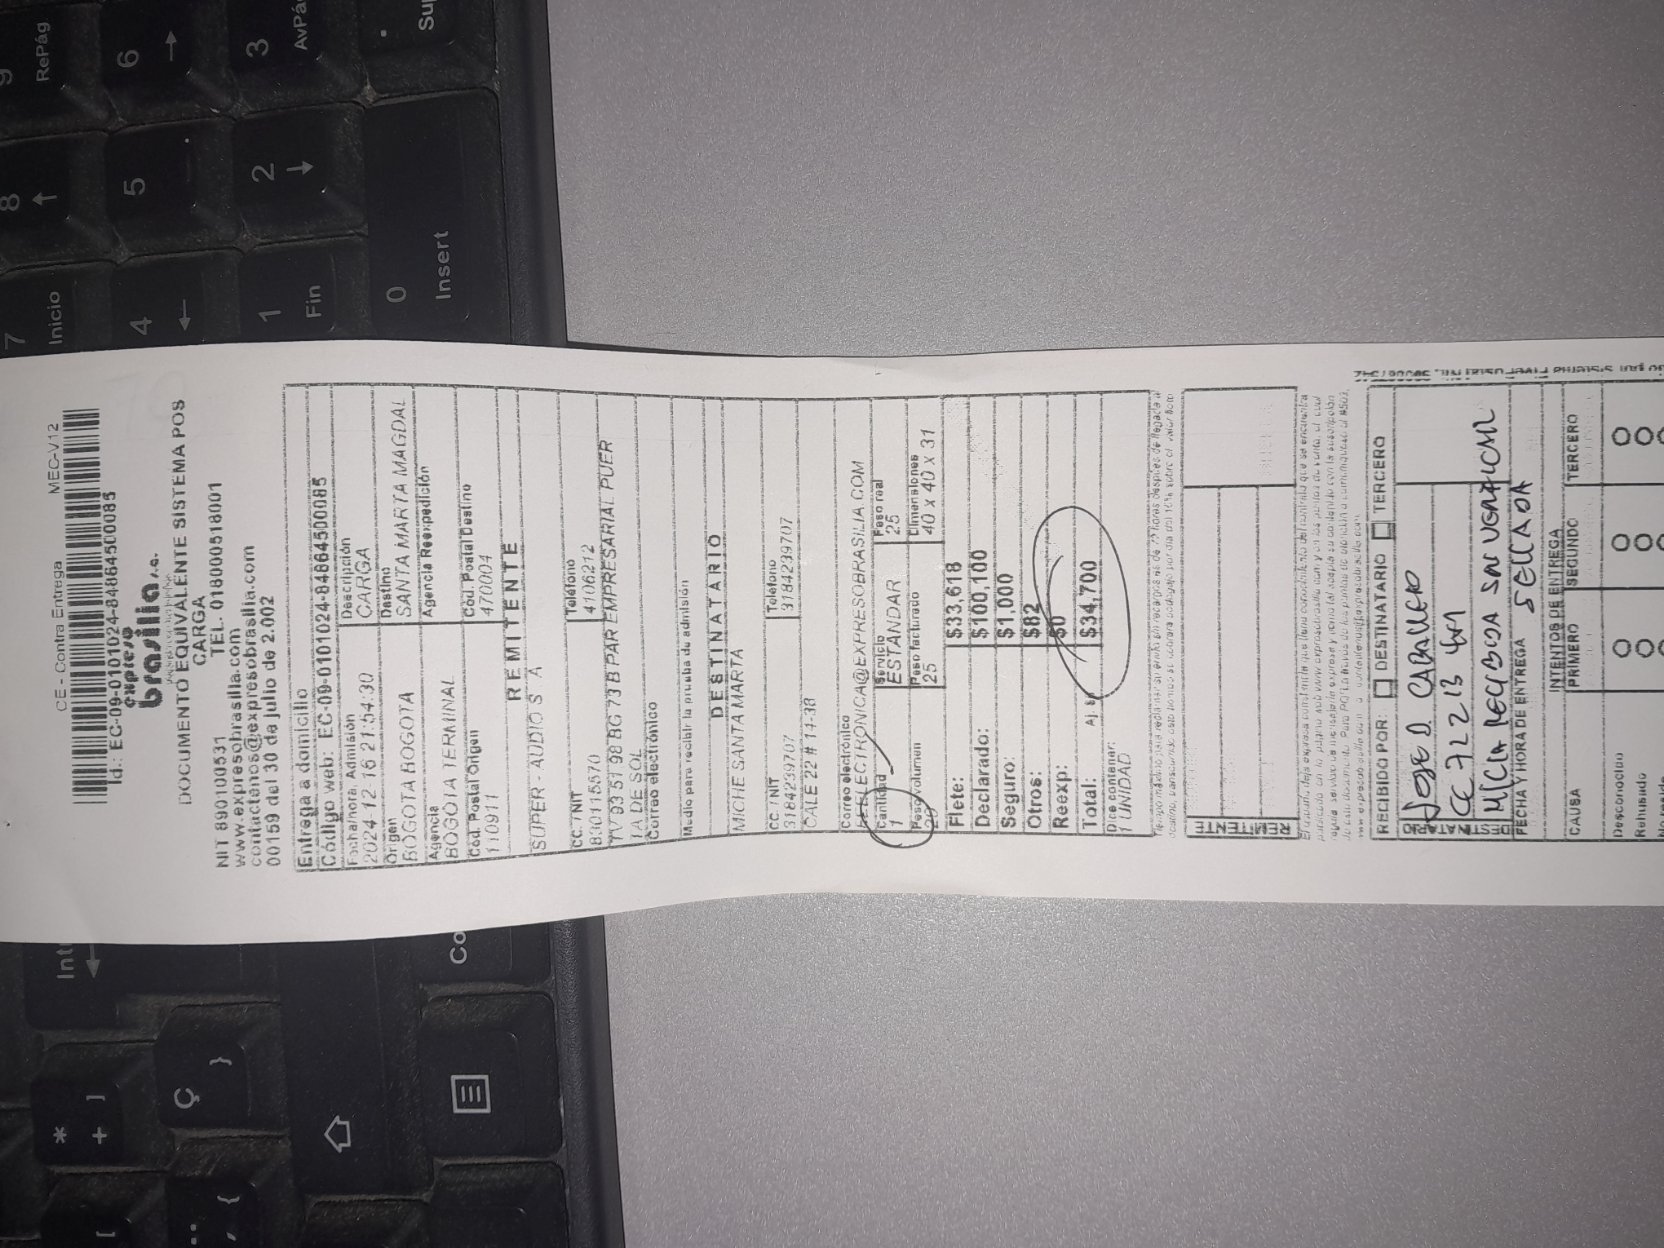 CE - Contra Entrega MEC-V12
Id.: EC-09-0101024-84864500085
expreso
brasilia s.a.
DOCUMENTO EQUIVALENTE SISTEMA POS
CARGA
NIT 890100531 TEL. 018000518001
www.expresobrasilia.com
contactenos@expresobrasilia.com
00159 del 30 de julio de 2.002
Entrega a domicilio
Código web: EC-09-0101024-84864500085
Fecha/hora Admisión Descripción
2024 12 16 21:54:30 CARGA
Origen Destino
BOGOTA BOGOTA SANTA MARTA MAGDAL
Agencia Agencia Reexpedición
BOGOTA TERMINAL
Cód. Postal Origen Cód. Postal Destino
110911 470004
REMITENTE
SUPER - AUDIO S A
CC. / NIT Teléfono
830115570 4106212
TV 93 51 98 BG 73 B PAR EMPRESARIAL PUER
TA DE SOL
Correo electrónico
Medio para recibir la prueba de admisión
DESTINATARIO
MICHE SANTA MARTA
CC. / NIT Teléfono
3184239707 3184239707
CALE 22 # 14-38
Correo electrónico
FEELECTRONICA@EXPRESOBRASILIA.COM
Cantidad Servicio Peso real
1 ESTANDAR 25
Peso/volumen Peso facturado Dimensiones
20 25 40 x 40 x 31
Flete: $33,618
Declarado: $100,100
Seguro: $1,000
Otros: $82
Reexp: $0
Total: Aj $ $34,700
Dice contener:
1 UNIDAD
REMITENTE
RECIBIDO POR: DESTINATARIO TERCERO
JOSE D. CABALLERO
CC 722 13 441
MCIA RECIBIDA SIN VERIFICAR
SELLADA
DESTINATARIO
FECHA Y HORA DE ENTREGA
INTENTOS DE ENTREGA
CAUSA PRIMERO SEGUNDO TERCERO
Desconocido
Rehusado
9 RePág
6 →
3 AvPá
.
Su
8 ↑
5
2 ↓
7 Inicio
4 ←
1 Fin
0 Insert
Int
Co
* + ]
Ç }
[
{